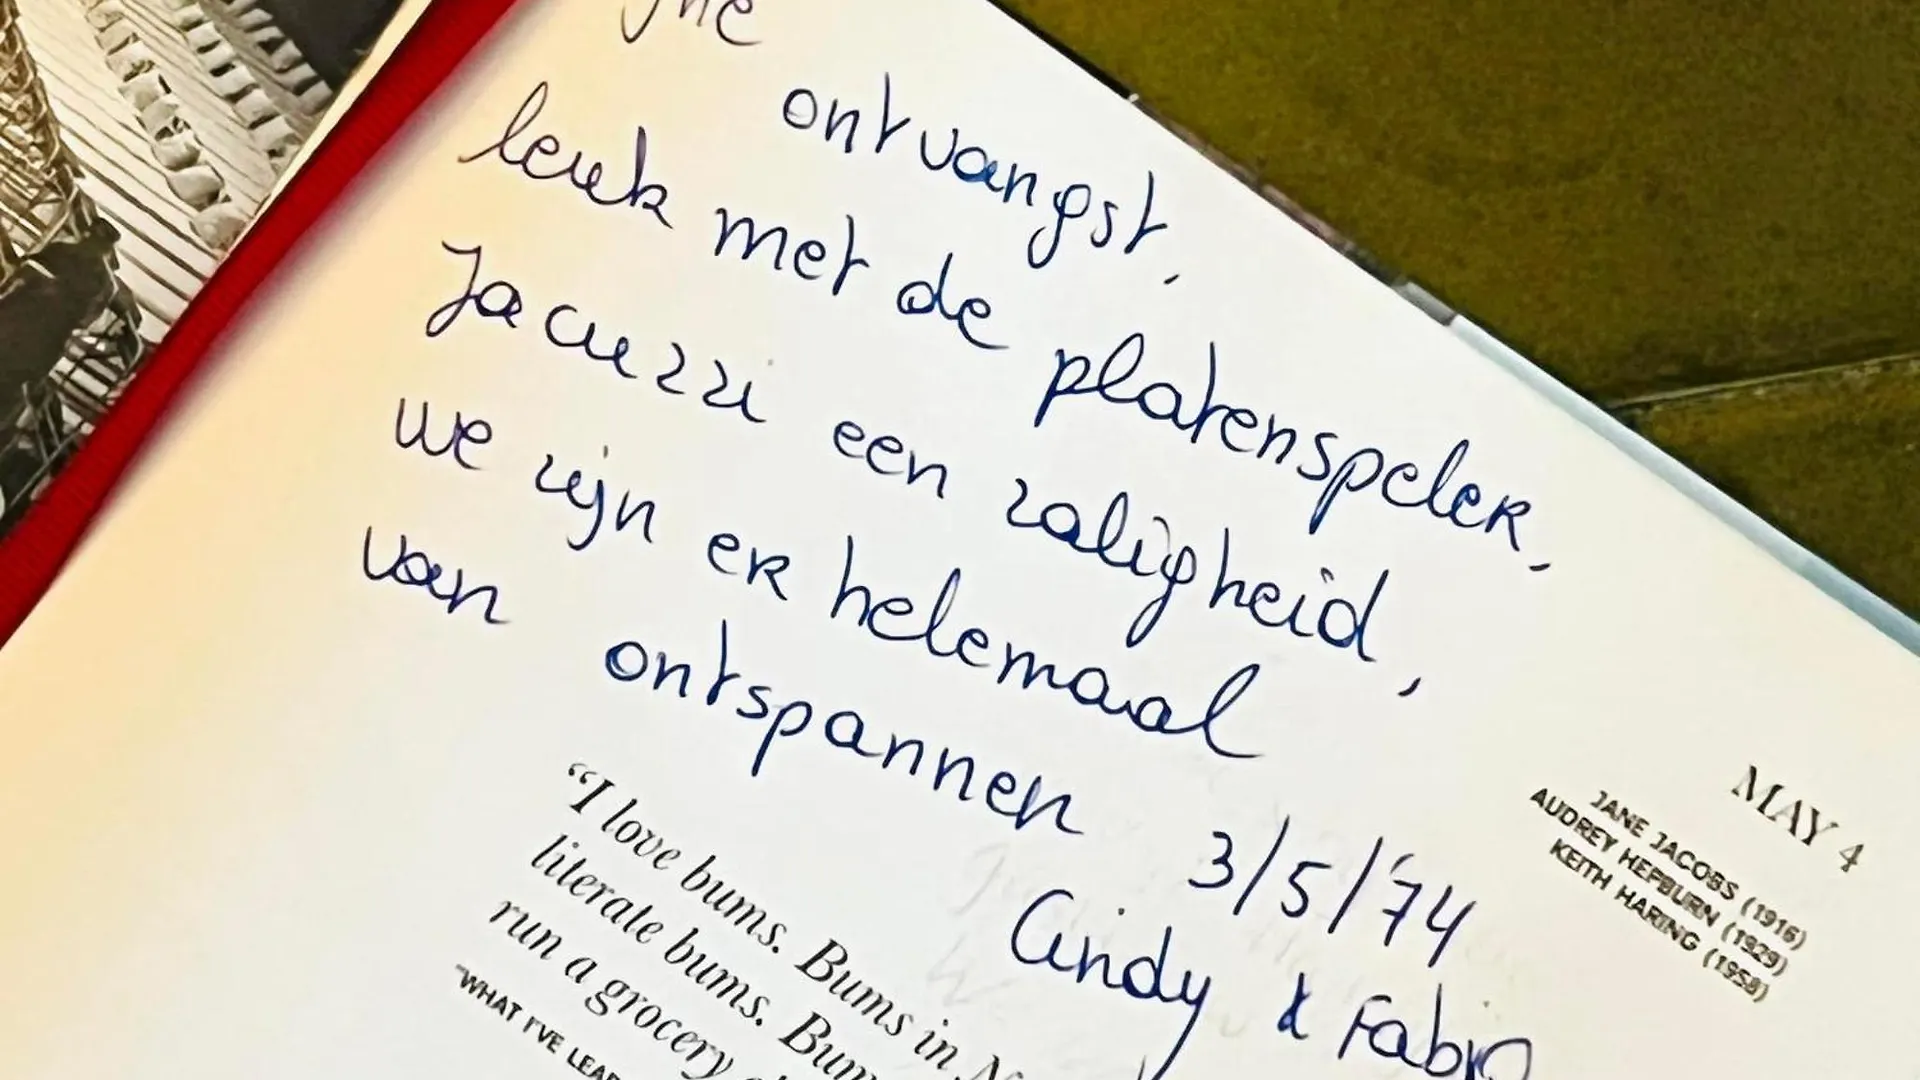 ontvangst,
leuk met de platenspeler,
Jacuzzi een zaligheid,
we zijn er helemaal
van ontspannen
3/5/'74
Cindy &
MAY 4
JANE JACOBS (1916)
AUDREY HEPBURN (1929)
KEITH HARING (1958)
"I love bums. Bums in
literate bums.
run a grocery
"WHAT I'VE